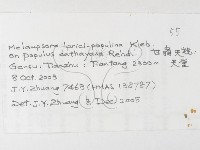 55
Melampsora larici-populina Kleb
on Populus cathayana Rehd. 甘肃天祝:
Gansu, Tianzhu: Tiantang 2300m 天堂
8 Oct. 2005
J.Y. Zhuang 7463 (HMAS 138787)
Det. J.Y. Zhuang 8 Dec. 2005